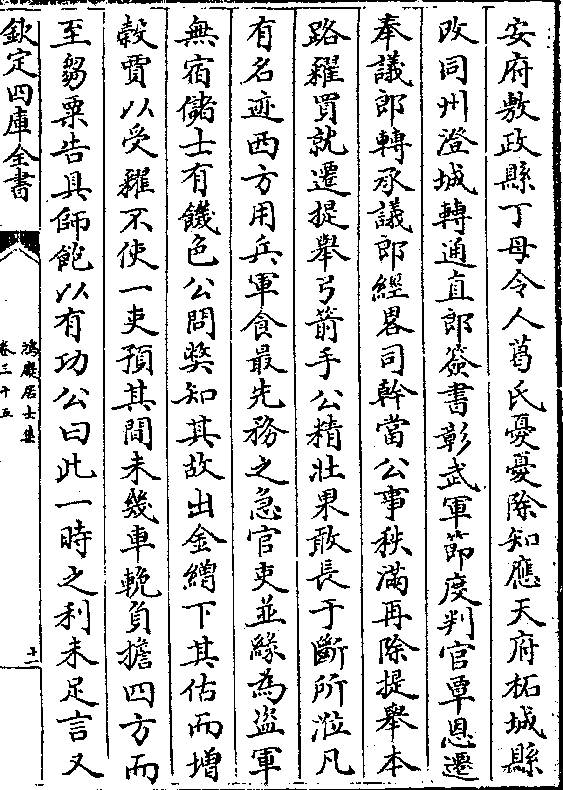 安府敷政縣丁母令人葛氏憂憂除知應天府柘城縣
改同州澄城轉通直郎簽書彰武軍節度判官覃恩遷
奉議郎轉承議郎經畧司幹當公事秩滿再除提舉本
路糴買就遷提舉弓箭手公精壯果敢長于斷所涖凡
有名迹西方用兵軍食最先務之急官吏並緣為盗軍
無宿儲士有饑色公問獘知其故出金繒下其估而增
穀賈以受糴不使一吏預其間未幾車輓負擔四方而
至芻粟告具師飽以有功公曰此一時之利未足言又
欽定四庫全書
鴻慶居士集
卷三十五
十二